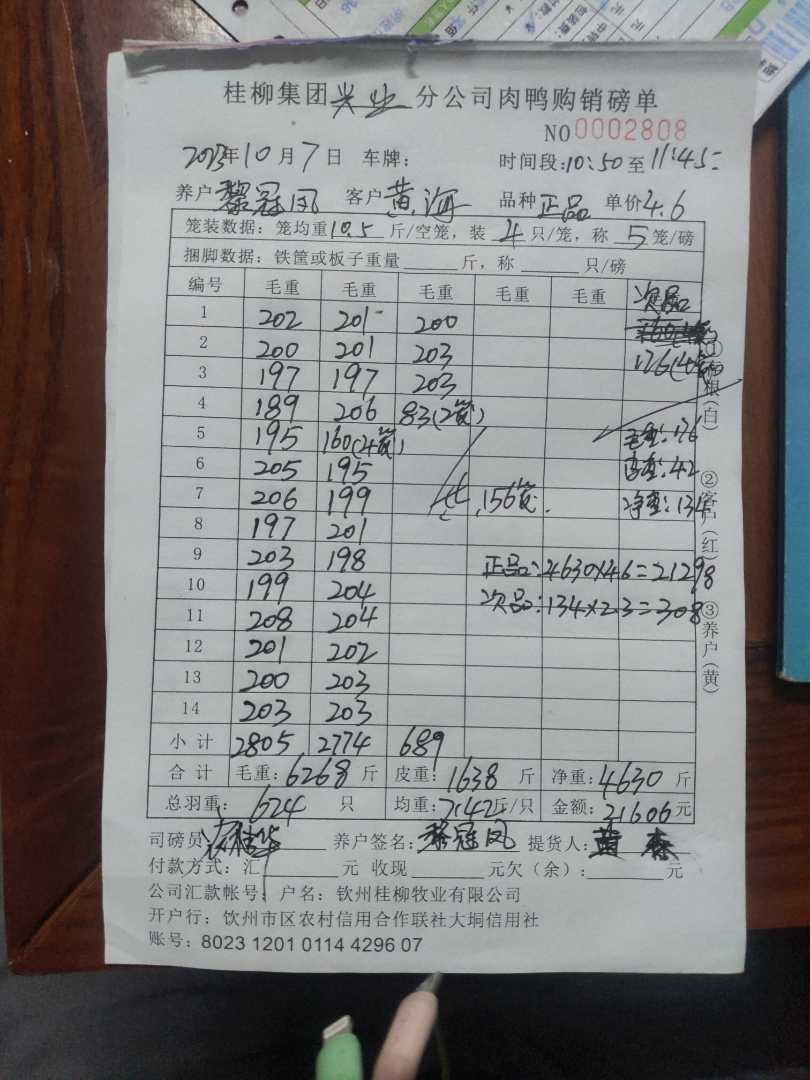 桂柳集团兴业分公司肉鸭购销磅单
NO 0002808
2023年10月7日 车牌: 时间段:10:50至11:45
养户黎冠凤 客户黄海 品种正品 单价4.6
笼装数据: 笼均重10.5斤/空笼, 装4只/笼, 称5笼/磅
捆脚数据: 铁筐或板子重量 斤, 称 只/磅
编号 毛重 毛重 毛重 毛重 毛重 次品
1 202 201 200
2 200 201 203 176(4笼)
3 197 197 203
4 189 206 83(2笼)
5 195 160(4笼) 毛重:176
6 205 195 皮重:42
7 206 199 共156笼. 净重:134
8 197 201
9 203 198 正品:4630×4.6=21298
10 199 204 次品:134×2.3=308
11 208 204
12 201 202
13 200 203
14 203 203
小计 2805 2774 689
合计 毛重:6268斤 皮重:1638斤 净重:4630斤
总羽重: 624只 均重:7.42斤/只 金额:21606元
司磅员 养户签名:黎冠凤 提货人:黄
付款方式:汇 元 收现 元欠(余): 元
公司汇款帐号: 户名: 钦州桂柳牧业有限公司
开户行: 钦州市区农村信用合作联社大垌信用社
账号: 8023 1201 0114 4296 07
①存根(白) ②客户(红) ③养户(黄)